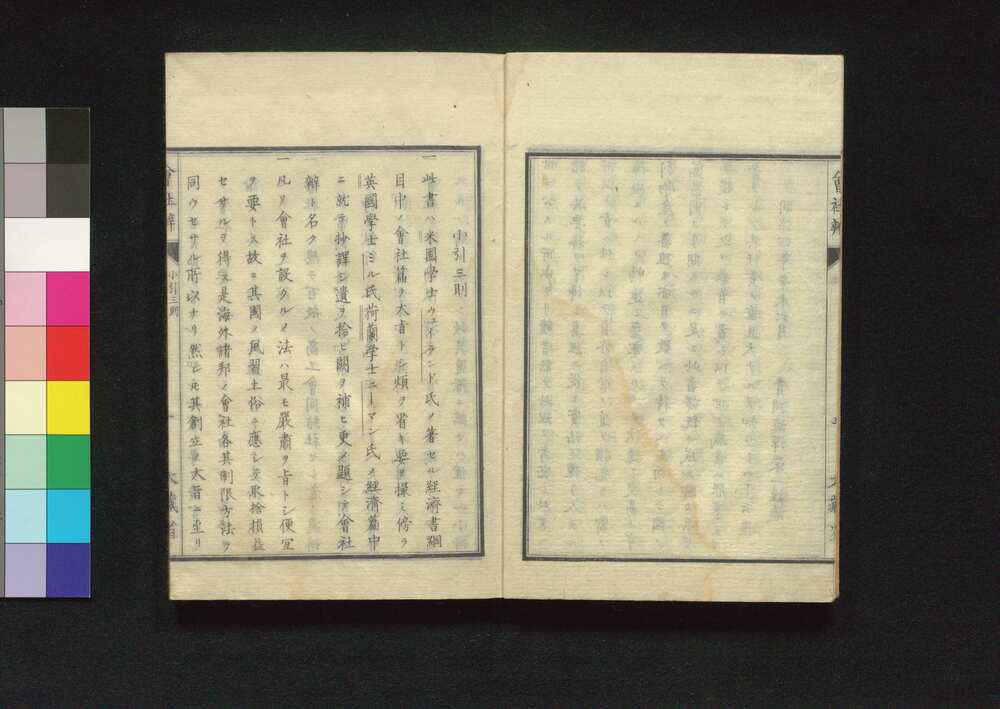 會社辨
大藏省
小引三則
一此書ハ米國學士ウエイランド氏ノ著セル經濟書綱
目中ノ會社篇ヲ大旨トシ煩ヲ省キ要ヲ撮ミ傍ラ
英國學士ミル氏荷蘭学士ニーマン氏ノ經濟篇中
ニ就テ抄譯シ遺ヲ拾ヒ闕ヲ補ヒ更ニ題シテ會社
辨ト名ク
一凡ソ會社ヲ設クルノ法ハ最モ嚴肅ヲ旨トシ便宜
ヲ要トス故ニ其國ノ風習土俗ニ應シ取捨損益
セサルヲ得ス是海外諸邦ノ會社各其制限方法ヲ
同ウセサル所以ナリ然レ𪜈其創立ノ大旨ニ至リ
會社辨
小引三則
一
大藏省